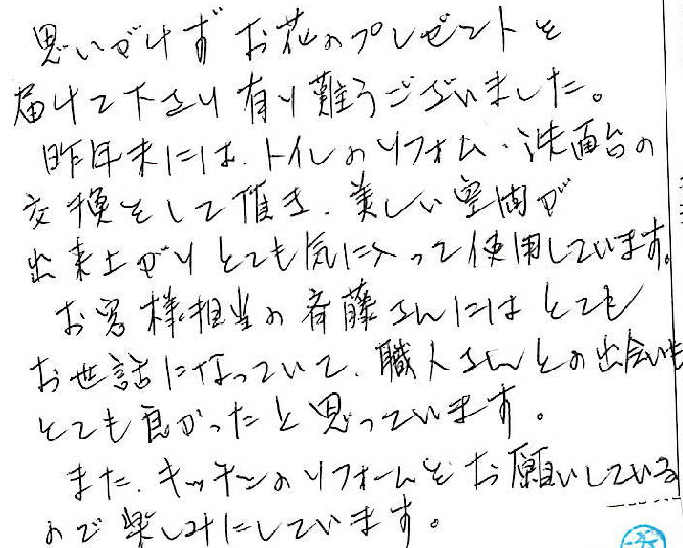 思いがけず お花のプレゼントを
届けて下さり 有り難うございました。
昨年末には、トイレのリフォム・洗面台の
交換をして頂き、美しい空間が
出来上がり とても気に入って使用しています。
お客様担当の斉藤さんにはとても
お世話になっていて、職人さんとの出会いも
とても良かったと思っています。
また、キッチンのリフォームをお願いしている
ので楽しみにしています。